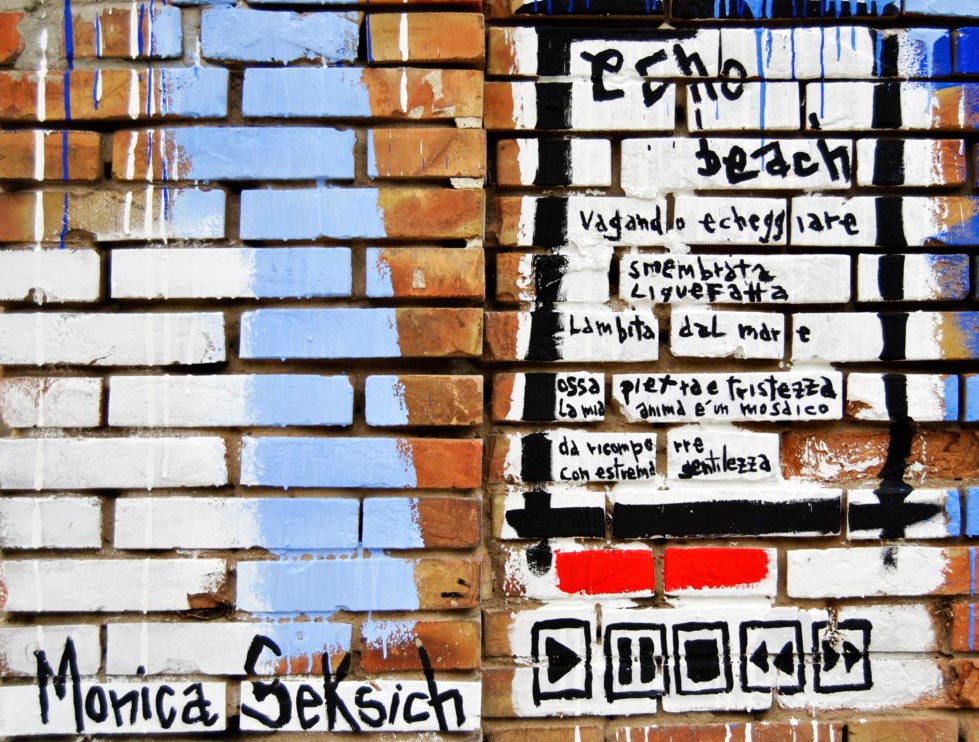 echo
beach
vagando echeggiare
smembrata
LiqueFatta
Lambita dal mare
ossa pietra e tristezza
La mia anima é un mosaico
da ricomporre
con estrema gentilezza
Monica Seksich